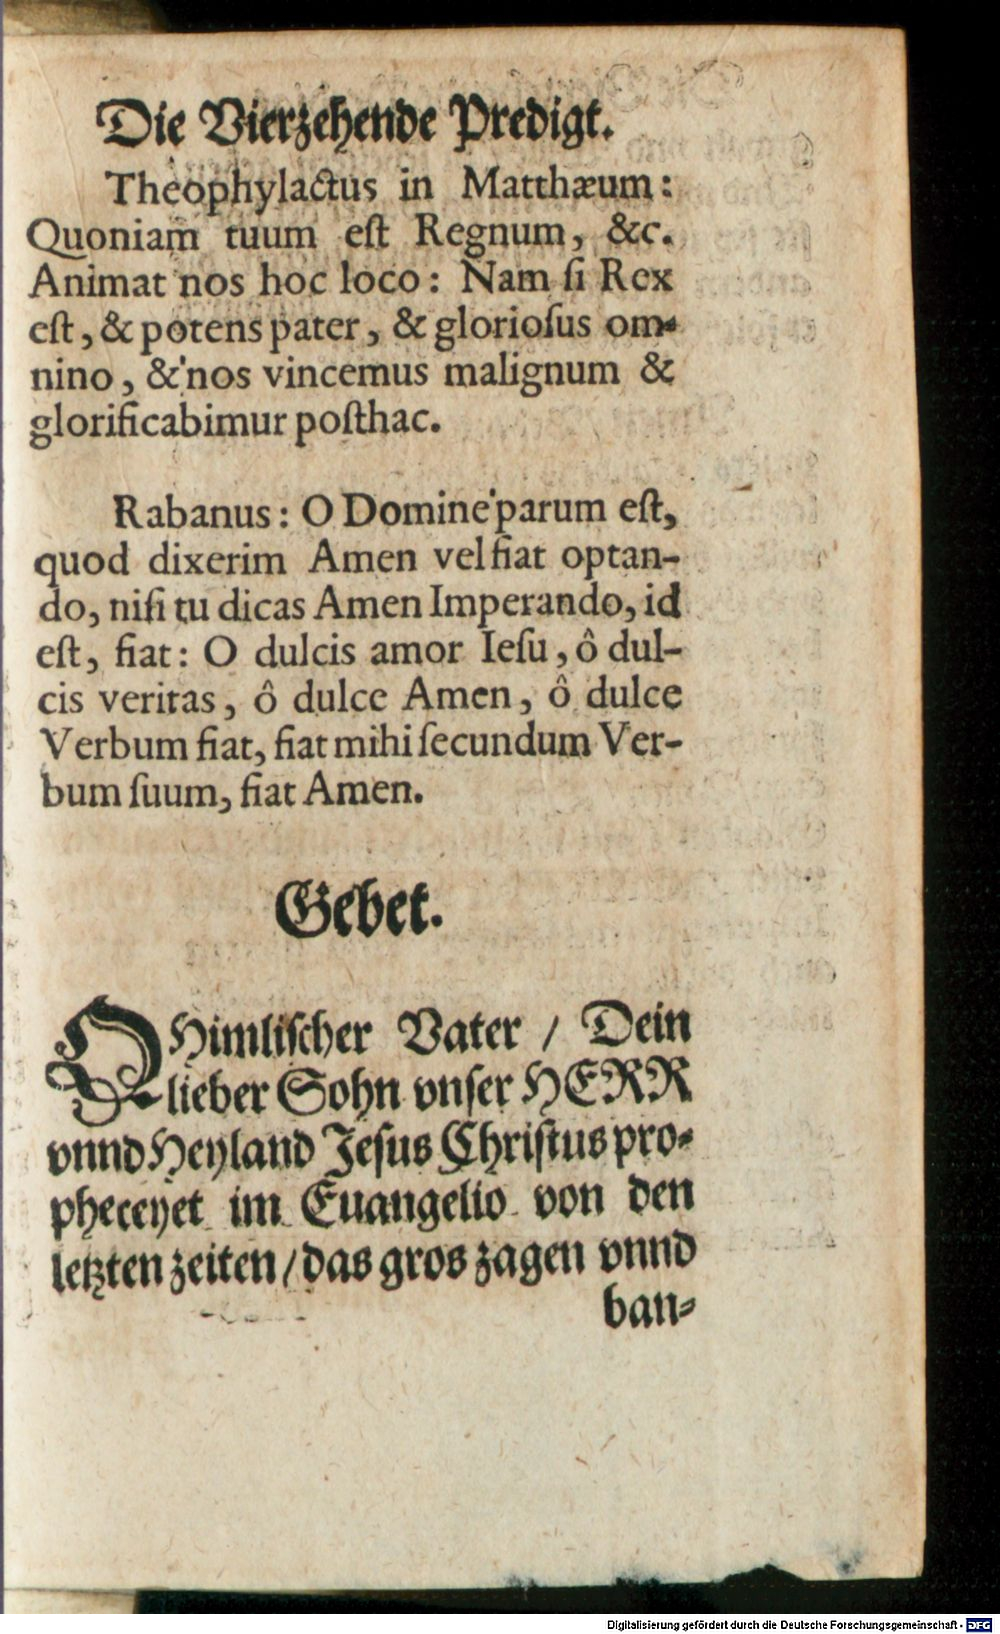 Die Vierzehende Predigt.
Theophylactus in Matthæum:
Quoniam tuum eſt Regnum, &c.
Animat nos hoc loco: Nam ſi Rex
eſt, & potens pater, & glorioſus om⸗
nino, & nos vincemus malignum &
glorificabimur poſthac.
Rabanus: O Domine parum eſt,
quod dixerim Amen vel fiat optan-
do, niſi tu dicas Amen Imperando, id
eſt, fiat: O dulcis amor Ieſu, ô dul-
cis veritas, ô dulce Amen, ô dulce
Verbum fiat, fiat mihi ſecundum Ver-
bum ſuum, fiat Amen.
Gebet.
O Himliſcher Vater / Dein
lieber Sohn vnſer HERR
vnnd Heyland Jeſus Chriſtus pro⸗
pheceyet im Euangelio von den
letzten zeiten / das gros zagen vnnd
ban⸗
Digitalisierung gefördert durch die Deutsche Forschungsgemeinschaft - DFG